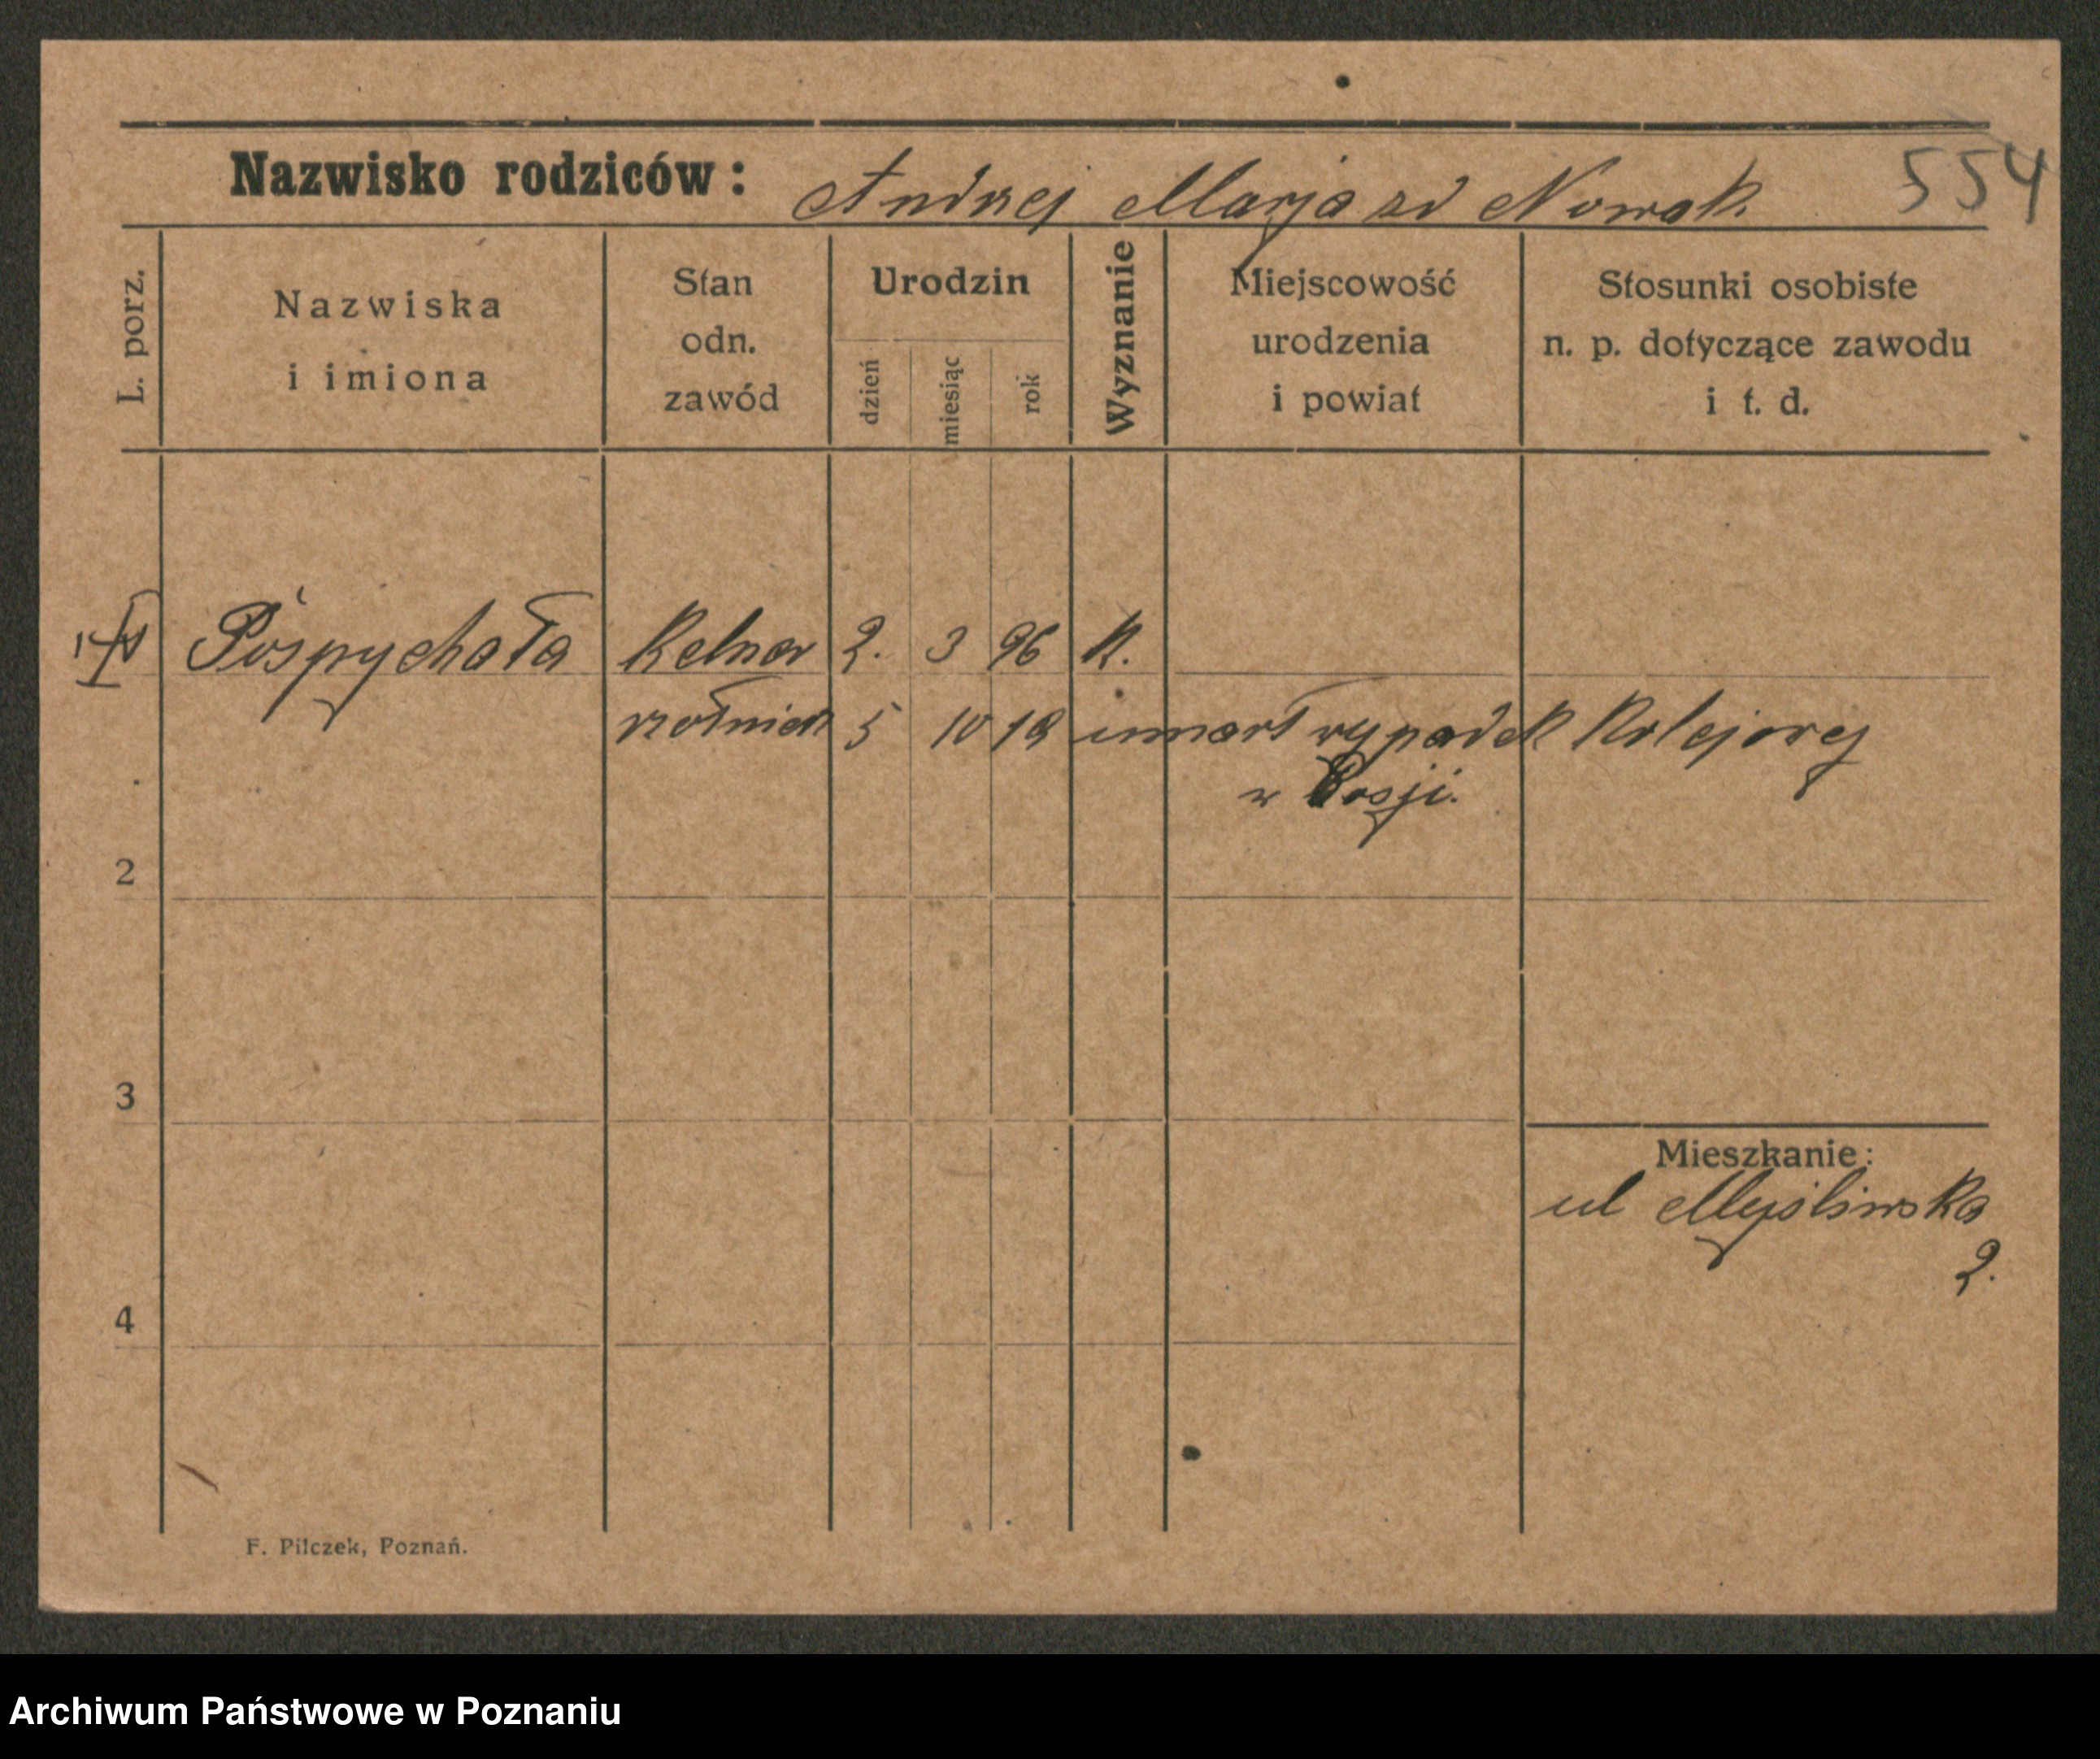 554
Nazwisko rodziców: Andrzej Marja zd Nowak.
L. porz.
Nazwiska
i imiona
Stan
odn.
zawód
Urodzin
dzień
miesiąc
rok
Wyznanie
Miejscowość
urodzenia
i powiat
Stosunki osobiste
n. p. dotyczące zawodu
i t. d.
1 Pospychała Kelner 2. 3 96 K.
żołnierz 5 10 18 umarł wypadek kolejowy
w Rosji.
2
3
4
Mieszkanie:
ul Myśliwska
2.
F. Pilczek, Poznań.
Archiwum Państwowe w Poznaniu